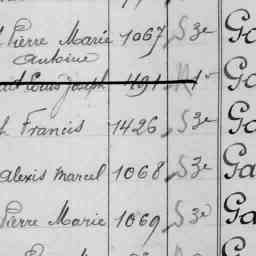 Pierre Marie 1067 S 3e Ga
Antoine
Louis Joseph 491
h Francis 1426 S 3e Ga
Alexis Marcel 1068 S 3e Ga
Pierre Marie 1069 S 3e Ga